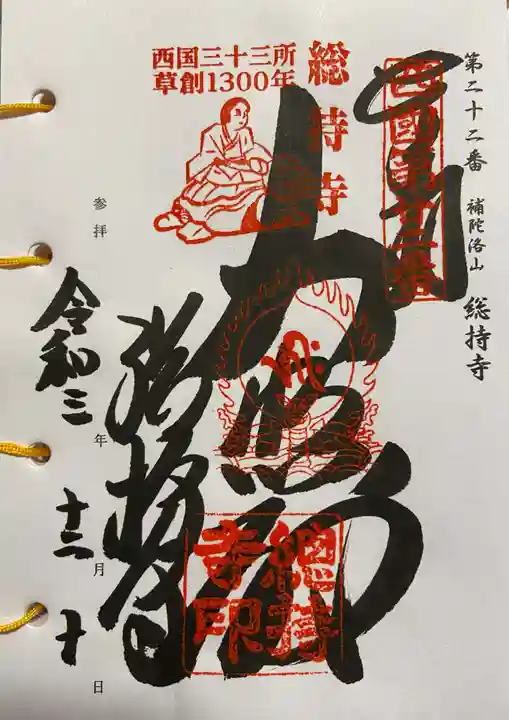 第二十二番 補陀洛山 総持寺
西國第廿二番
総持寺
西国三十三所
草創1300年
總持
寺印
総持寺
参拝
令和三年十二月十日